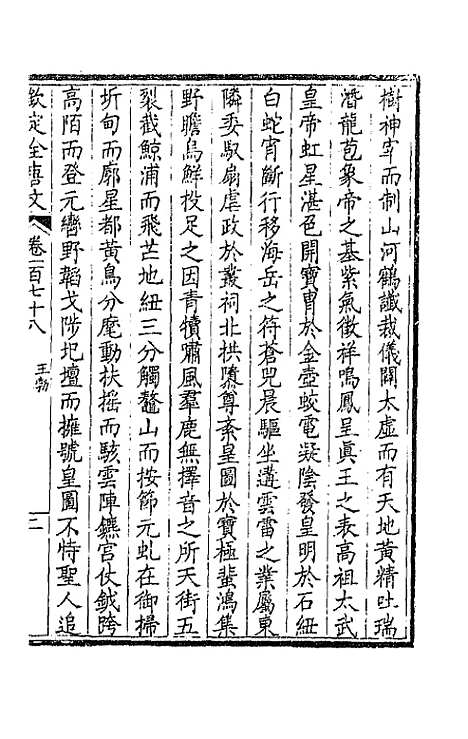 樹神宰而制山河鶴讖裁儀闢太虛而有天地黃精吐瑞
潛龍苞象帝之基紫氣徵祥鳴鳳呈眞王之表高祖太武
皇帝虹星湛色開寶胄於金壺蛟電凝陰發皇明於石紐
白蛇宵斷行移海岳之符蒼兕晨驅坐遘雲雷之業屬東
隣委馭扇虐政於叢祠北拱隳尊紊皇圖於寶極蜚鴻集
野瞻烏鮮投足之因青犢嘯風羣鹿無擇音之所天街五
裂截鯨浦而飛芒地紐三分觸鼇山而按節元虬在御掃
圻甸而廓星都黃鳥分麾動扶搖而駭雲陣鑣宮仗鉞跨
高陌而登元轡野韜戈陟圯壇而擁號皇圖不恃聖人追
欽定全唐文
卷一百七十八
王勃
二